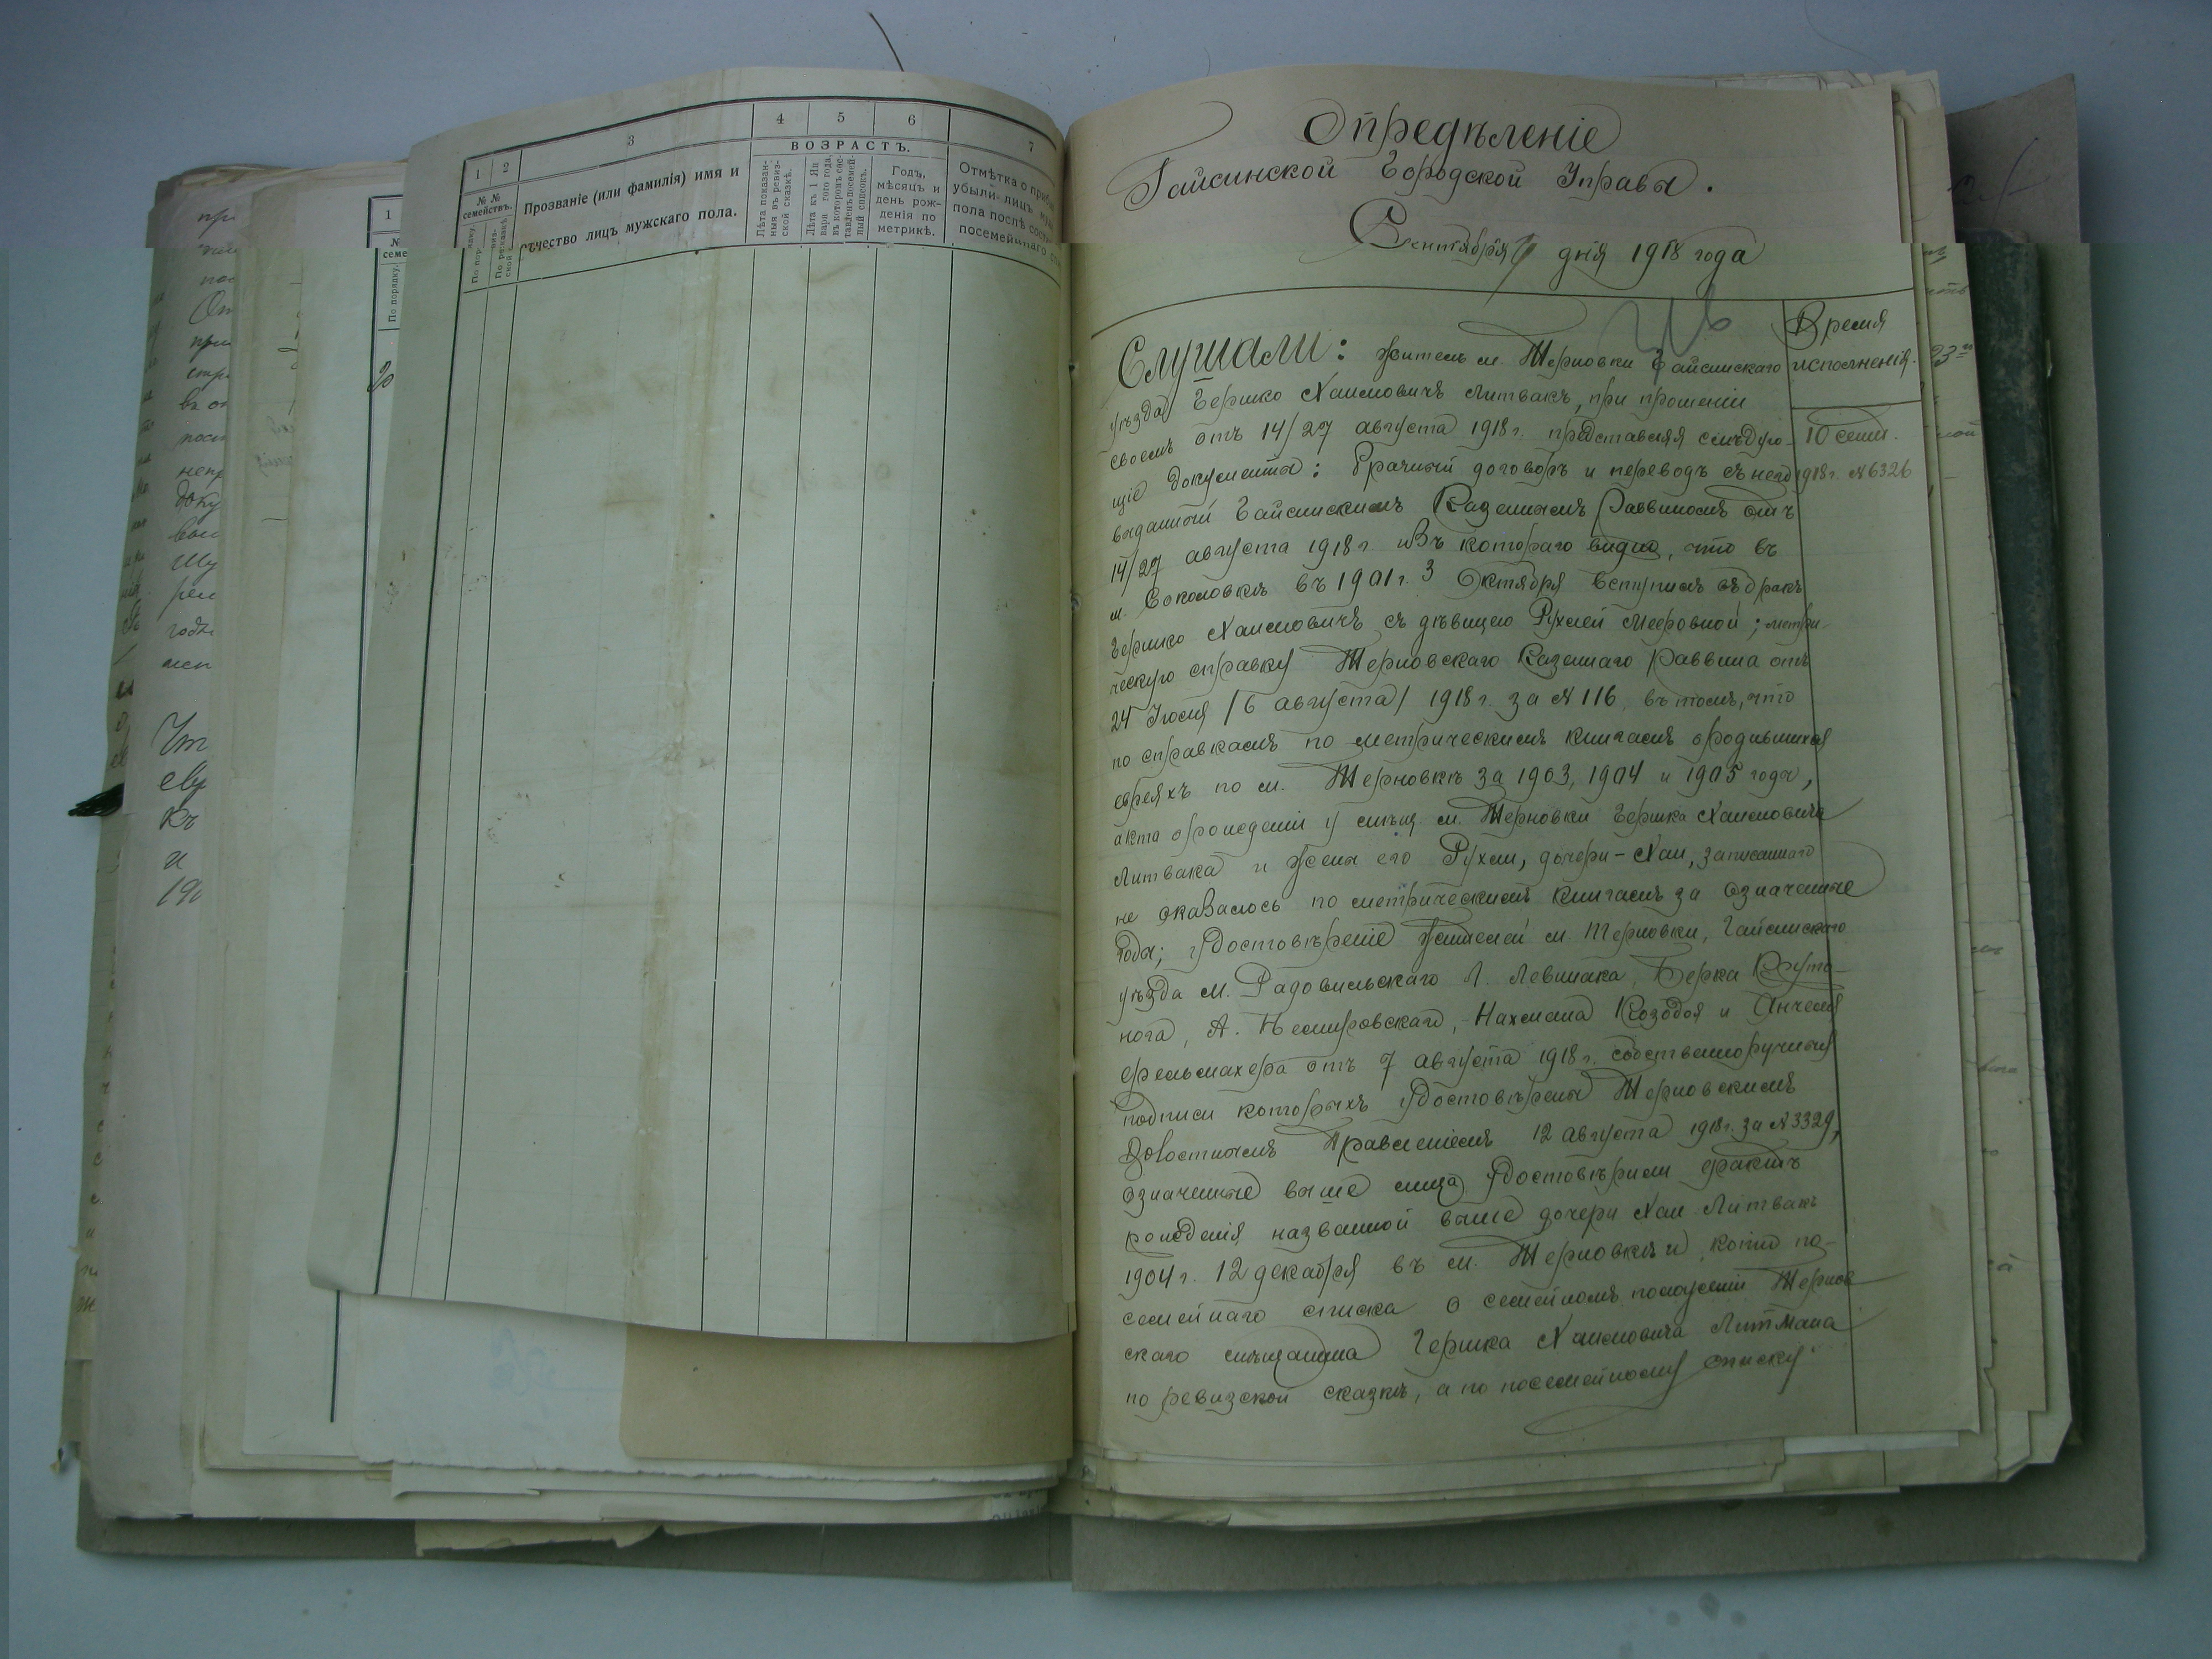 1 2 3 4 5 6 7
ВОЗРАСТЪ.
№ №
семействъ.
По порядку.
Прозваніе (или фамилія) имя и
отчество лицъ мужскаго пола.
Лѣта показан-
ныя въ ревиз-
ской сказкѣ.
Лѣта къ 1 Ян
Годъ,
мѣсяцъ и
день рож-
денія по
метрикѣ.
Отмѣтка о
убыли лицъ
пола послѣ
посемейнаго
Опредѣленіе
Гайсинской Городской Управы.
Сентября дня 1918 года
Время
исполненія.
10 сент.
1918 г. № 6326
Слушали: житель м. Терновки Гайсинскаго
уѣзда Гершко Хаимовичъ Литвакъ, при прошеніи
своемъ отъ 14/27 августа 1918 г. представляя слѣдую-
щіе документы: Брачный договоръ и переводъ съ него
выданный Гайсинскимъ Казеннымъ Раввиномъ отъ
14/27 августа 1918 г. изъ котораго видно, что въ
м. Соколовкѣ въ 1901 г. 3 Октября вступилъ въ бракъ
Гершко Хаимовичъ съ дѣвицею Рухлей Мееровной; метри-
ческую справку Терновскаго Казеннаго Раввина отъ
24 Іюля /6 августа/ 1918 г. за № 116, въ томъ, что
по справкамъ по метрическимъ книгамъ о родившихся
евреяхъ по м. Терновкѣ за 1903, 1904 и 1905 года,
акта о рожденіи у мѣщ. м. Терновки Гершка Хаимовича
Литвака и жены его Рухли, дочери - Хаи, записаннаго
не оказалось по метрическимъ книгамъ за означенные
года; удостовѣреніе жителей м. Терновки, Гайсинскаго
уѣзда М. Радовильскаго Л. Левшака, Берка Круто-
нога, А. Немировскаго, Нахмана Козодоя и Анчеля
Фельмахера отъ 7 августа 1918 г. собственноручныя
подписи которыхъ удостовѣрены Терновскимъ
Волостнымъ Правленіемъ 12 августа 1918 г. за № 3329,
означенные выше лица удостовѣрили фактъ
рожденія названной выше дочери Хаи Литвакъ
1904 г. 12 декабря въ м. Терновкѣ и копію по-
семейнаго списка о семейномъ положеніи Тернов-
скаго мѣщанина Гершка Хаимовича Литмана
по ревизской сказкѣ, а по посемейному списку